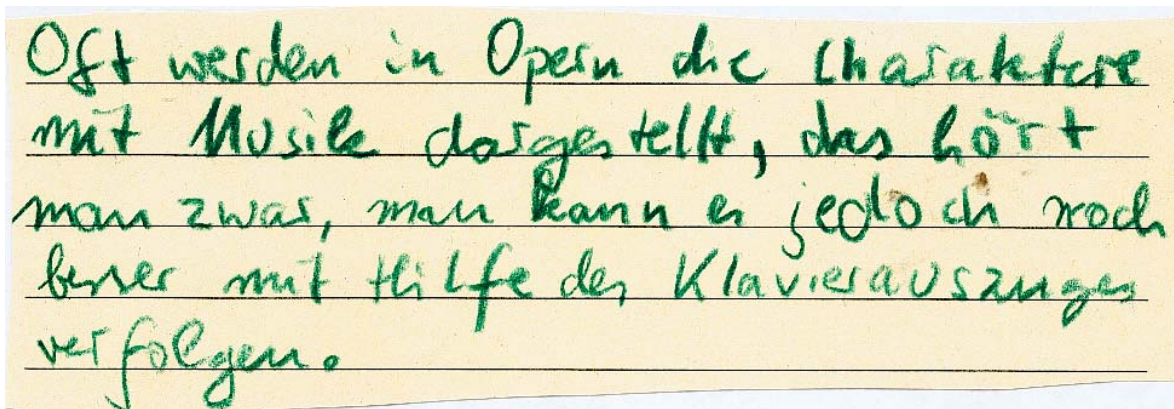 Oft werden in Opern die Charaktere
mit Musik dargestellt, das hört
man zwar, man kann es jedoch noch
besser mit Hilfe des Klavierauszuges
verfolgen.